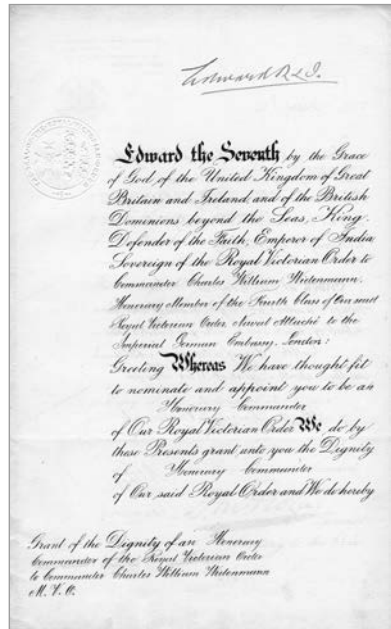 Edward R & I.
Edward the Seventh by the Grace
of God, of the United Kingdom of Great
Britain and Ireland, and of the British
Dominions beyond the Seas, King,
Defender of the Faith, Emperor of India
Sovereign of the Royal Victorian Order to
Commander Charles William Widenmann,
Honorary Member of the Fourth Class of Our said
Royal Victorian Order Naval Attaché to the
Imperial German Embassy, London:
Greeting Whereas We have thought fit
to nominate and appoint you to be an
Honorary Commander
of Our Royal Victorian Order We do by
these Presents grant unto you the Dignity
of Honorary Commander
of Our said Royal Order and We do hereby
Grant of the Dignity of an Honorary
Commander of the Royal Victorian Order
to Commander Charles William Widenmann
M.V.O.